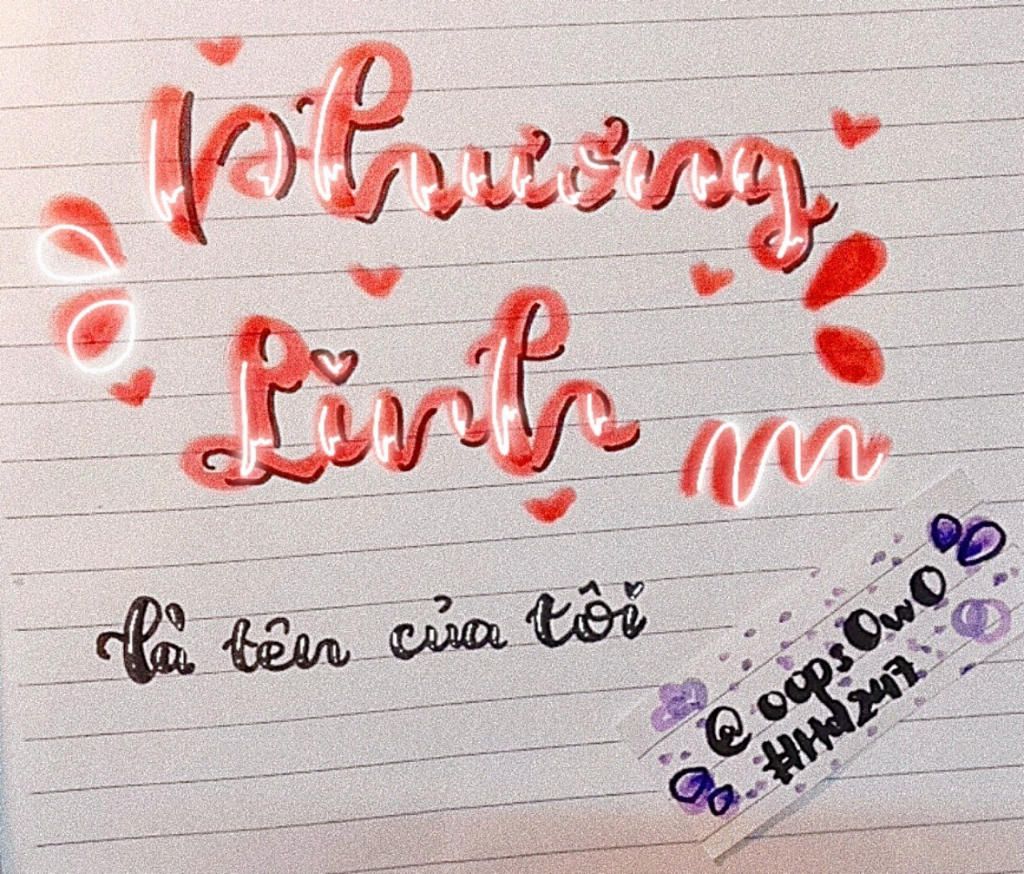 Phương
Linh
là tên của tôi
@oopsOwO
#HN247